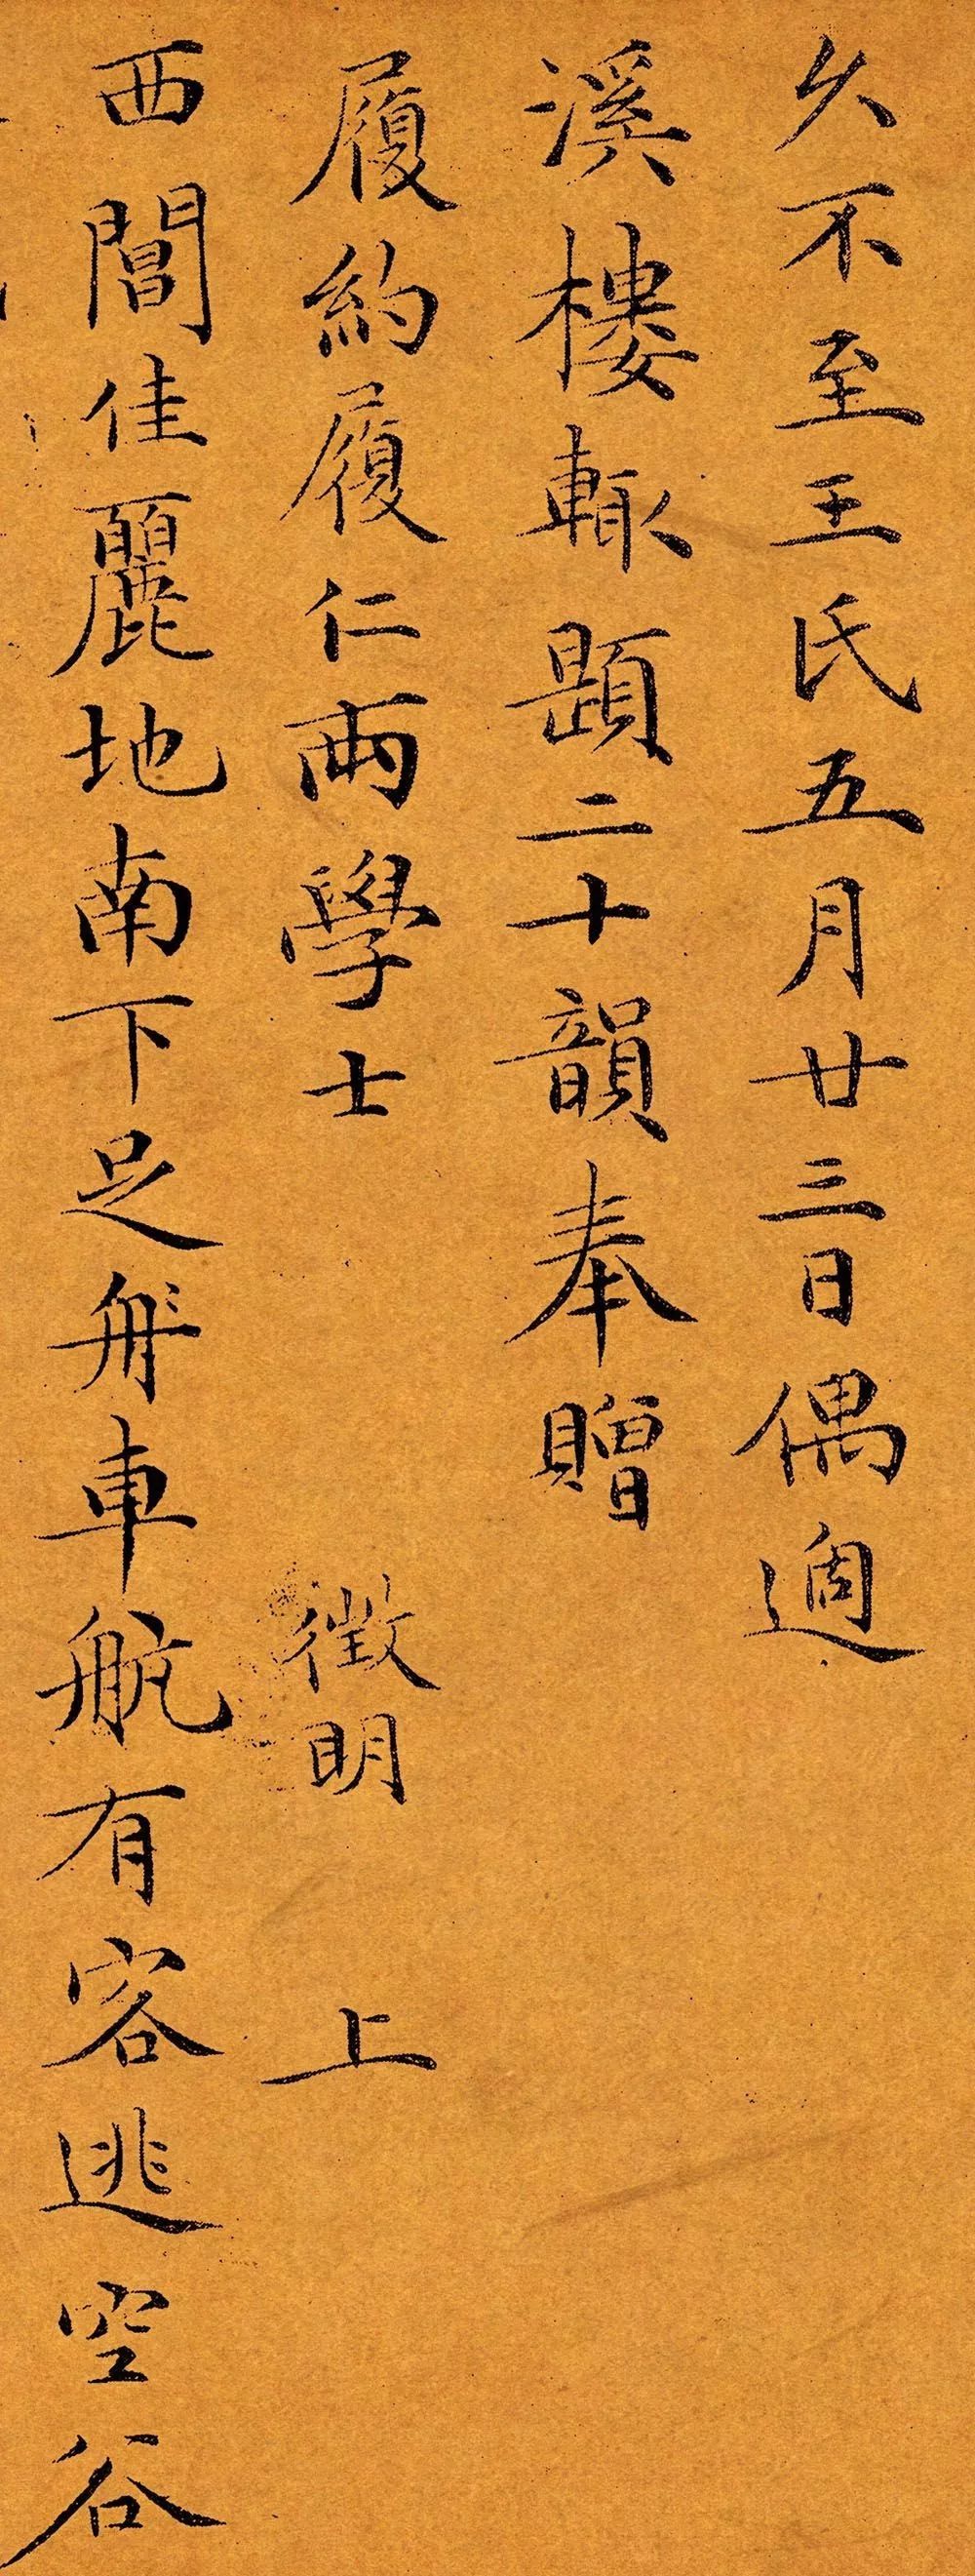 久不至王氏五月廿三日偶過
溪樓輒題二十韻奉贈
履約履仁兩學士 徵明 上
西閶佳麗地南下足舟車航有客逃空谷